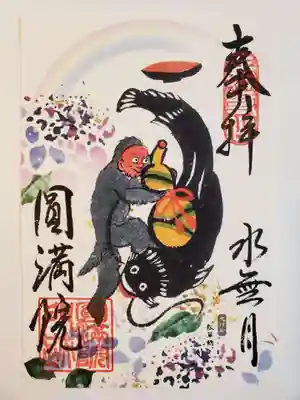 奉拝
水無月
圓満院